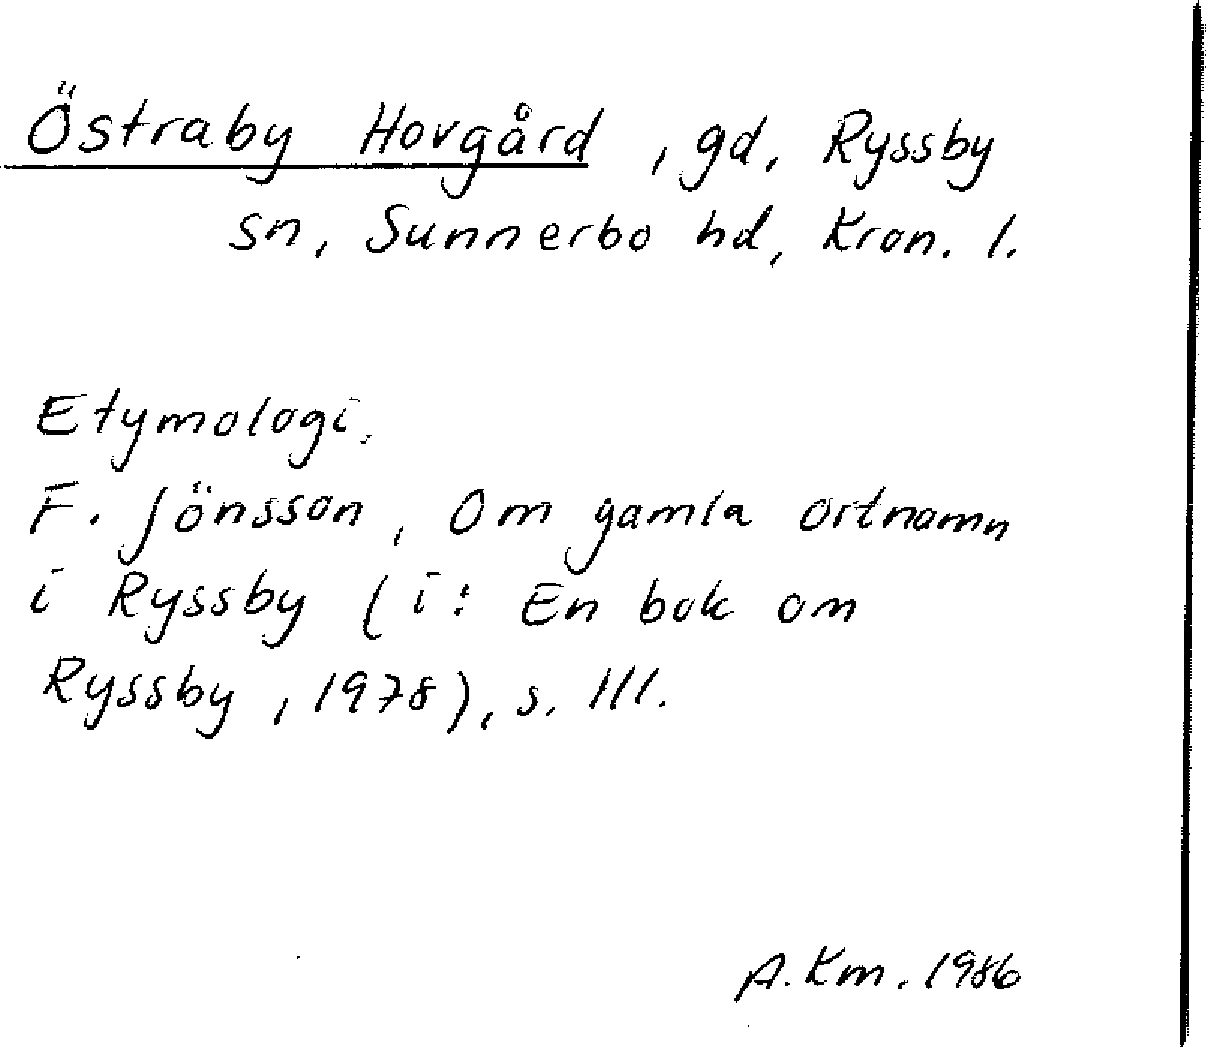 Östraby Hovgård, gd, Ryssby
sn, Sunnerbo hd, Kron. l.
Etymologi.
F. Jönsson, Om gamla ortnamn
i Ryssby (i: En bok om
Ryssby, 1978), s. 111.
A. Km. 1986